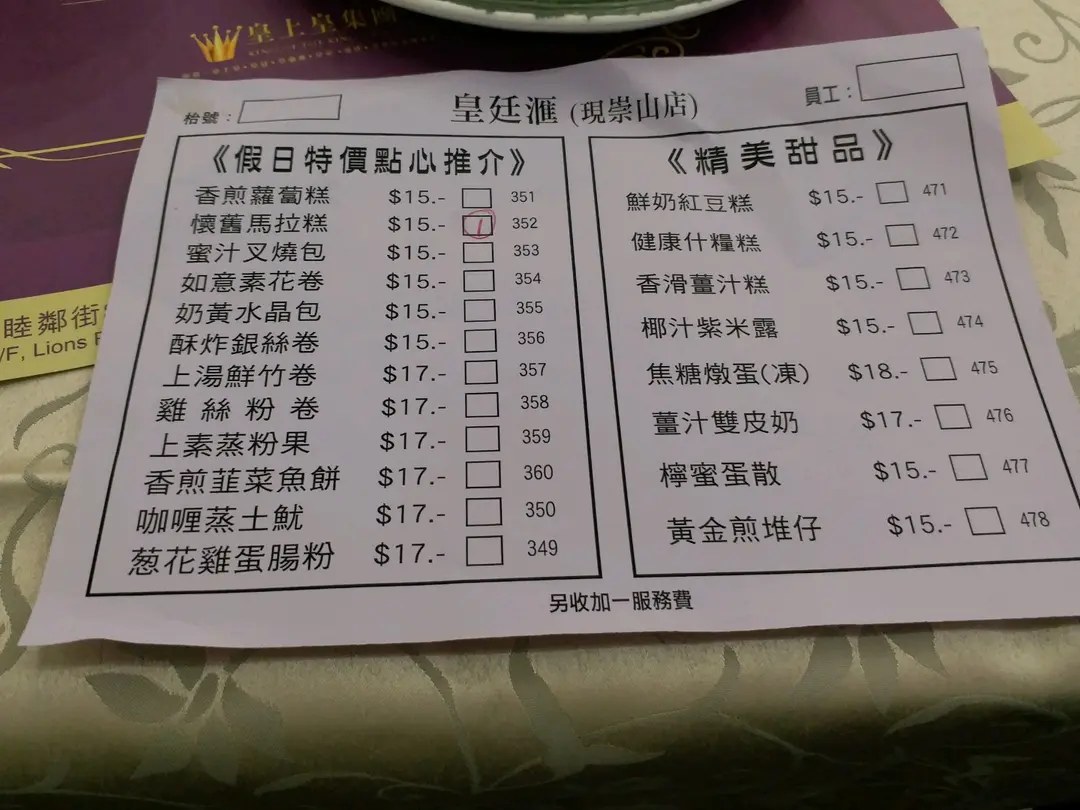 皇上皇集團
枱號：
皇廷滙 (現崇山店)
員工：
《假日特價點心推介》
香煎蘿蔔糕 $15.- 351
懷舊馬拉糕 $15.- 1 352
蜜汁叉燒包 $15.- 353
如意素花卷 $15.- 354
奶黃水晶包 $15.- 355
酥炸銀絲卷 $15.- 356
上湯鮮竹卷 $17.- 357
雞絲粉卷 $17.- 358
上素蒸粉果 $17.- 359
香煎韮菜魚餅 $17.- 360
咖喱蒸土魷 $17.- 350
葱花雞蛋腸粉 $17.- 349
《精美甜品》
鮮奶紅豆糕 $15.- 471
健康什糧糕 $15.- 472
香滑薑汁糕 $15.- 473
椰汁紫米露 $15.- 474
焦糖燉蛋(凍) $18.- 475
薑汁雙皮奶 $17.- 476
檸蜜蛋散 $15.- 477
黃金煎堆仔 $15.- 478
另收加一服務費
睦鄰街
/F, Lions